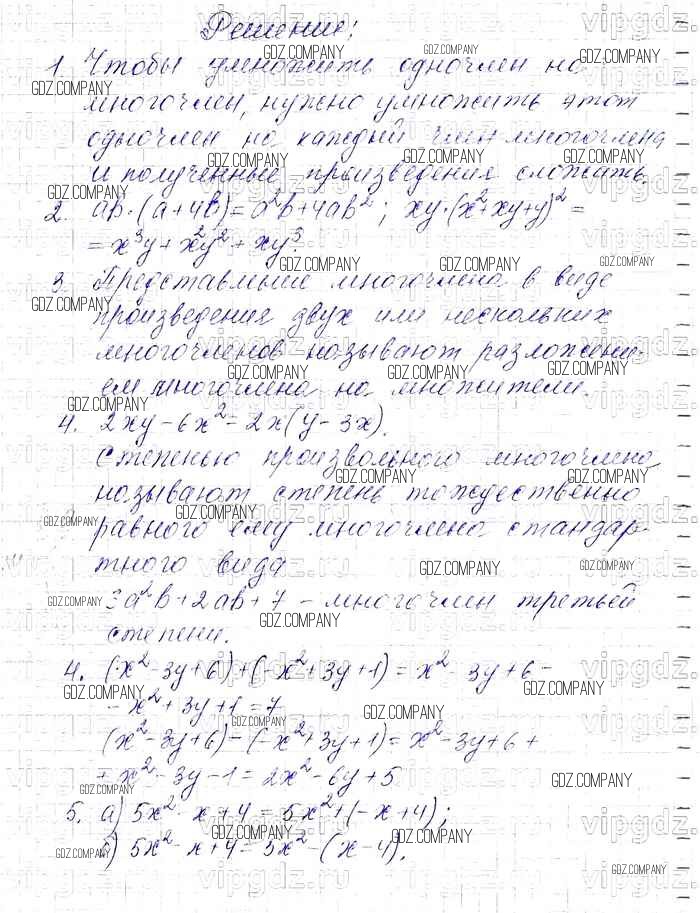 Решение:
1. Чтобы умножить одночлен на
многочлен, нужно умножить этот
одночлен на каждый член многочлена
и полученные произведения сложить.
2. ab·(a+4b)=a²b+4ab²; xy·(x²+xy+y)²=
=x³y+x²y²+xy³.
3. Представление многочлена в виде
произведения двух или нескольких
многочленов называют разложени-
ем многочлена на множители.
4. 2xy-6x²=2x(y-3x).
Степенью произвольного многочлена
называют степень тождественно
равного ему многочлена стандар-
тного вида
3a²b+2ab+7 - многочлен третьей
степени.
4. (x²-3y+6)+(-x²+3y+1)=x²-3y+6-
-x²+3y+1=7
(x²-3y+6)-(-x²+3y+1)=x²-3y+6+
+x²-3y-1=2x²-6y+5
5. а) 5x²-x+4=5x²+(-x+4);
б) 5x²-x+4=5x²-(x-4).